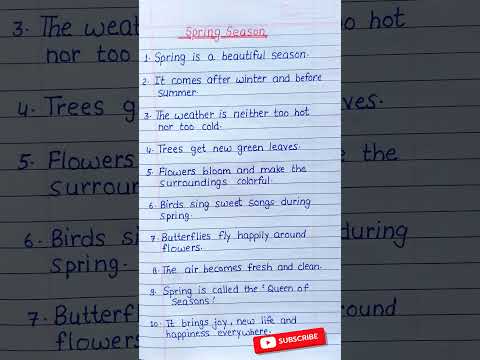 Spring Season
1. Spring is a beautiful season.
2. It comes after winter and before
summer.
3. The weather is neither too hot
nor too cold.
4. Trees get new green leaves.
5. Flowers bloom and make the
surroundings colorful.
6. Birds sing sweet songs during
spring.
7. Butterflies fly happily around
flowers.
8. The air becomes fresh and clean.
9. Spring is called the 'Queen of
Seasons'.
10. It brings joy, new life and
happiness everywhere.
SUBSCRIBE
3. The weat
nor too
4. Trees g
5. Flowers
surrour
6. Birds si
spring.
7. Butterf
flowers
oo hot
ves.
the
during